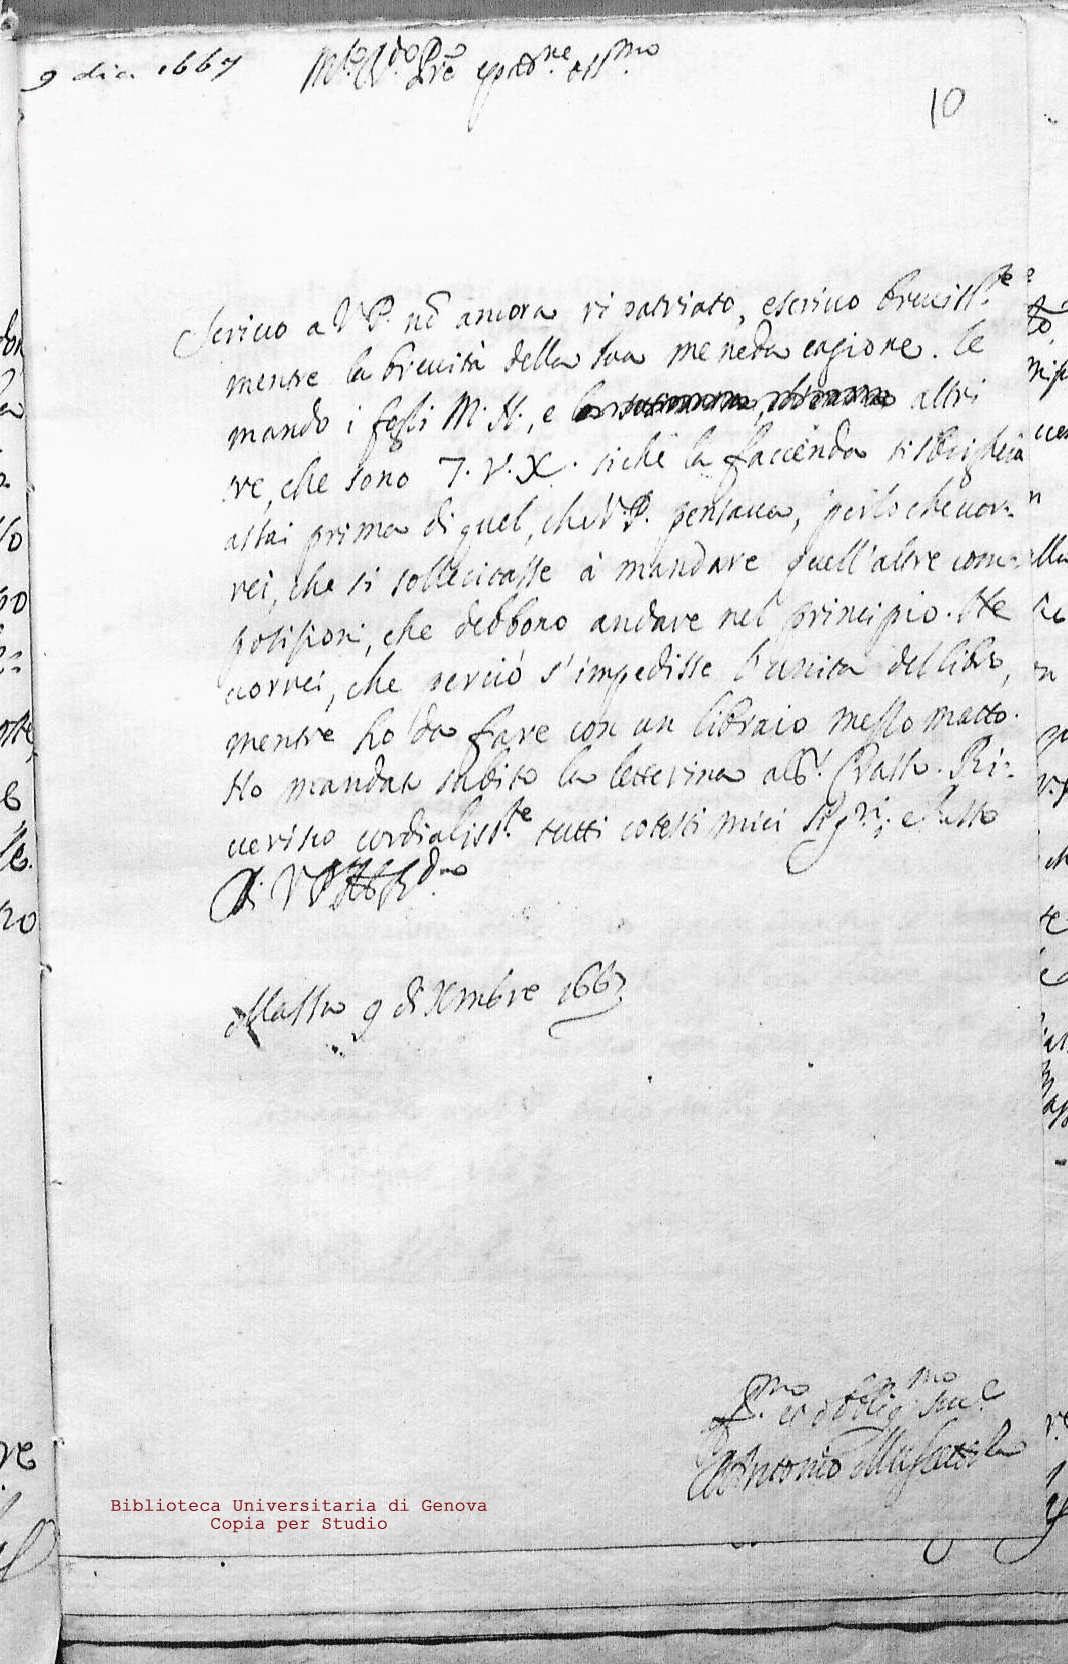 9 dic 1667
M.to R.do P.re e pad.ne oss.mo
10
Scrivo a V.P. nō ancora ripatriato, e scrivo breviss.te
mentre la brevità della sua me ne dà cagione. Le
mando i fogli M. N., e altri
tre, che sono T. V. X. siche la faccenda si sbrigherà
assai prima di quel, che V.P. pensava, perloche vor:
rei, che si sollecitasse à mandare quell'altre com:
posizioni, che debbono andare nel principio. Ne
vorrei, che perciò s'impedisse l'uscita del libro,
mentre ho da fare con un libraio mezzo matto.
Ho mandata subito la letterina al S.r Ri:
verisco cordialiss.te tutti cotesti miei Sig.ri, e resto
Di V.P. M.to R.da
Massa 9 di Xmbre 1667
S.mo et oblig.mo ser.e
Antonio
Biblioteca Universitaria di Genova
Copia per Studio